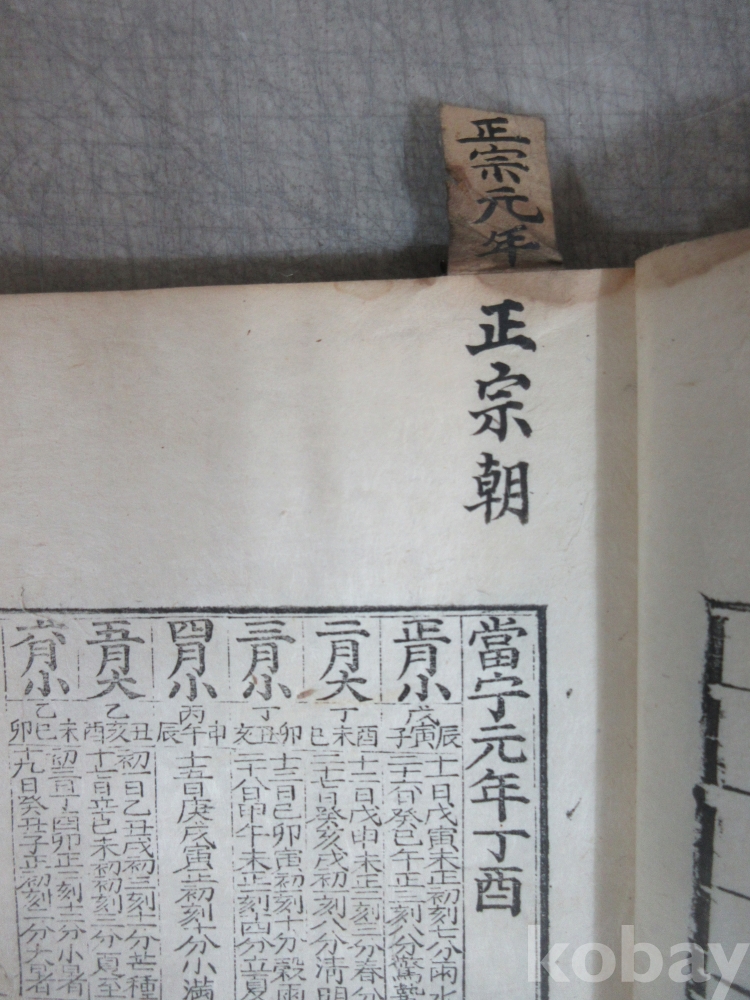 正宗元年
正宗朝
當宁元年丁酉
正月小
戊辰寅子
十一日戊寅未正初刻七分雨水
二十六日癸巳午正三刻八分驚蟄
二月大
丁酉未巳
十二日戊申未正一刻三分春分
二十七日癸亥戌初一刻八分清明
三月小
丁卯丑亥
十三日己卯寅初一刻十分穀雨
二十八日甲午未正一刻四分立夏
四月小
丙申午辰
十五日庚戌寅正初刻十分小滿
五月大
乙丑亥酉
初一日乙丑戌初二刻十一分芒種
十七日辛巳未初初刻二分夏至
六月小
乙未巳卯
初三日丁酉卯正二刻十一分小暑
十九日癸丑子正初刻二分大暑
kobay